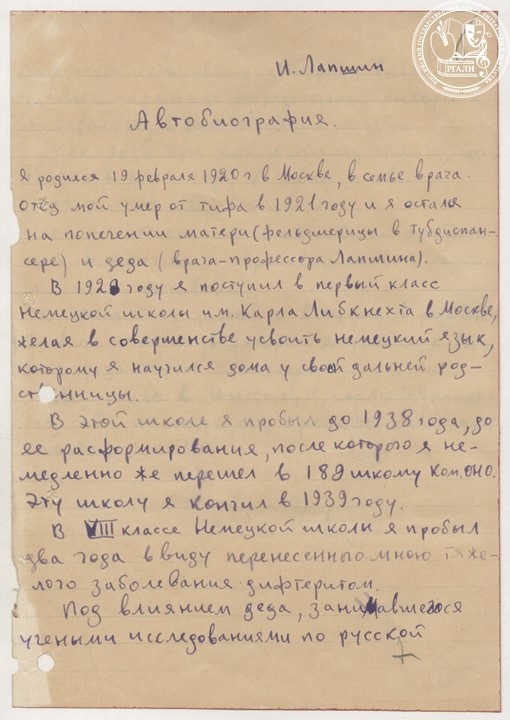 РГАЛИ
И. Лапшин
Автобиография.
Я родился 19 февраля 1920 г в Москве, в семье врача.
Отец мой умер от тифа в 1921 году и я остался
на попечении матери (фельдшерицы в тубдиспан-
сере) и деда (врача-профессора Лапшина).
В 1928 году я поступил в первый класс
Немецкой школы им. Карла Либкнехта в Москве,
желая в совершенстве усвоить немецкий язык,
которому я научился дома у своей дальней род-
ственницы.
В этой школе я пробыл до 1938 года, до
ее расформирования, после которого я не-
медленно же перешел в 189 школу Ком. ОНО.
Эту школу я кончил в 1939 году.
В VIII классе Немецкой школы я пробыл
два года в виду перенесенного мною тяже-
лого заболевания дифтеритом.
Под влиянием деда, занимавшегося
учеными исследованиями по русской